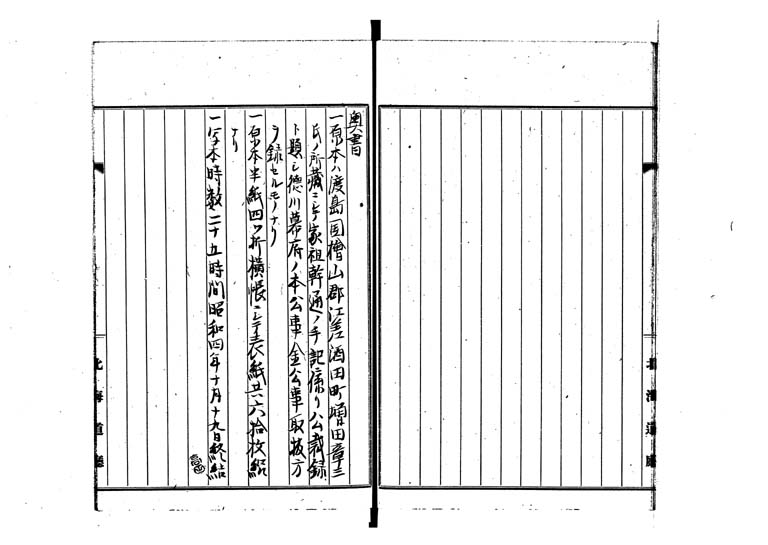 奥書
一原本ハ渡島国檜山郡江差酒田町増田章三
氏ノ所蔵ニシテ家祖幹通ノ手記係リ公裁録
ト題シ徳川幕府ノ本公事金公事取扱方
ヲ録セルモノナリ
一原本半紙四ツ折横帳ニシテ表紙共六拾枚綴
ナリ
一写本時数二十五時間昭和四年十月十九日終結
北海道廳
北海道廳